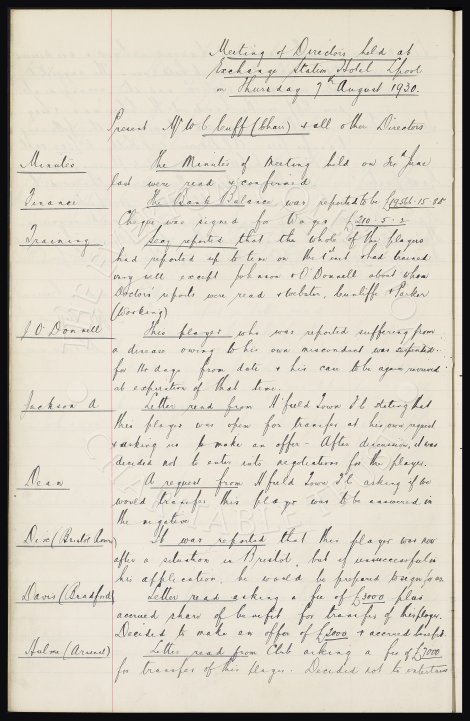 Meeting of Directors held at
Exchange Station Hotel Lpool
on Thursday 7th August 1930.
Present Mr W C Cuff (Chair) & all other Directors
Minutes The Minutes of Meeting held on 30th June
last were read & confirmed
Finance The Bank Balance was reported to be
Cheque was signed for Wages £210 . 5 . 2
Training Secy reported that the whole of the players
had reported up to time on the 1st inst & had trained
very well except Johnson & O'Donnell about whom
Doctor's reports were read & Webster, Cunliffe & Parker
(Working)
J O'Donnell This player who was reported suffering from
a disease owing to his own misconduct was suspended
for days from date & his case to be again reviewed
at expiration of that time.
Jackson A. Letter read from H'field Town F.C. stating that
this player was open for transfer at his own request
& asking us to make an offer - After discussion, it was
decided not to enter into negotiations for the player.
Dean A request from H'field Town F.C. asking if we
would transfer this player was to be answered in
the negative.
Dix (Bristol Rovers) It was reported that this player was now
after a situation in Bristol, but if unsuccessful in
his application, he would be prepared to sign for us
Davis (Bradford) Letter read asking a fee of £3000 plus
accrued share of benefit for transfer of this player.
Decided to make an offer of £2000 & accrued benefit.
Hulme (Arsenal) Letter read from Club asking a fee of £7000
for transfer of this player. Decided not to entertain